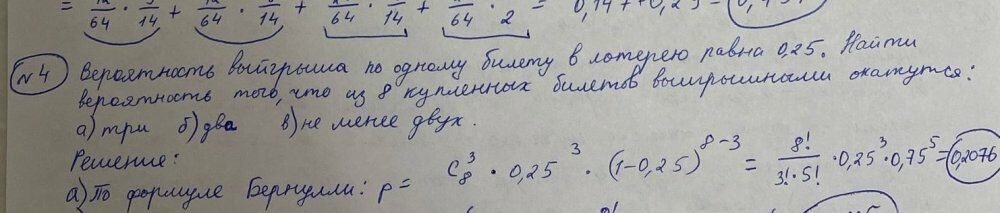 = 64 · 14 + 64 · 14 + 64 · 14 + 64 · 2
№4 Вероятность выигрыша по одному билету в лотерею равна 0,25. Найти
вероятность того, что из 8 купленных билетов выигрышными окажутся:
а) три б) два в) не менее двух.
Решение:
а) По формуле Бернулли: p = C₈³ · 0,25³ · (1-0,25)⁸⁻³ = 8!/(3!·5!) · 0,25³ · 0,75⁵ = 0,2076